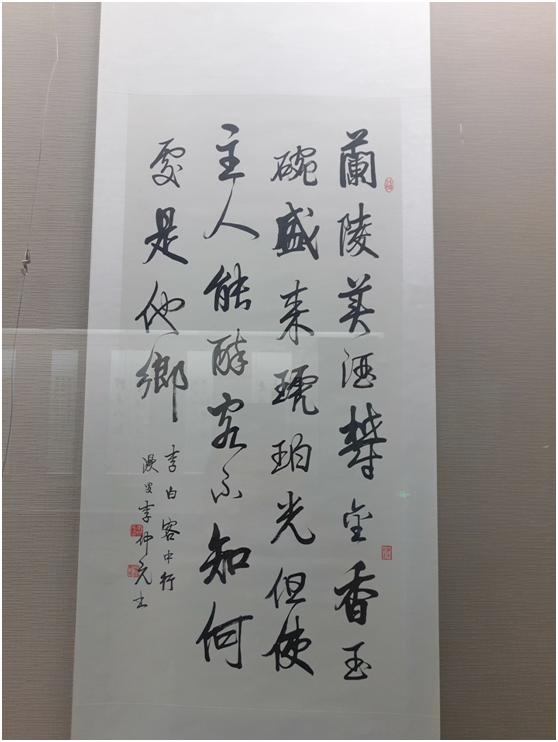 蘭陵美酒欝金香玉
碗盛来琥珀光但使
主人能醉客不知何
處是他鄉
李白客中行
漫叟李仲元书